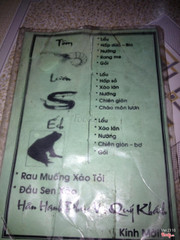 Tôm
* Lẩu
* Hấp
* Nướng
* Rang me
* Gỏi
Lươn
* Lẩu
* Hấp sả
* Xào lăn
* Nướng
* Chiên giòn
* Cháo môn lươn
Ếch
* Lẩu
* Xào lăn
* Nướng
* Chiên giòn - bơ
Gỏi
* Rau Muống Xào Tỏi
* Đầu Sen Xào
Hân Hạnh Quý Khách
Kính Mời